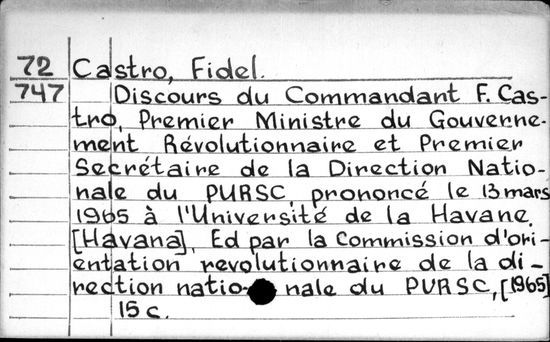 72 Castro, Fidel.
747 Discours du Commandant F. Cas-
tro, Premier Ministre du Gouverne-
ment Révolutionnaire et Premier
Secrétaire de la Direction Natio-
nale du PURSC, prononcé le 13 mars
1965 à l'Université de la Havane.
[Havana], Ed par la Commission d'ori-
entation revolutionnaire de la di-
rection natio- nale du PURSC, [1965]
15 c.